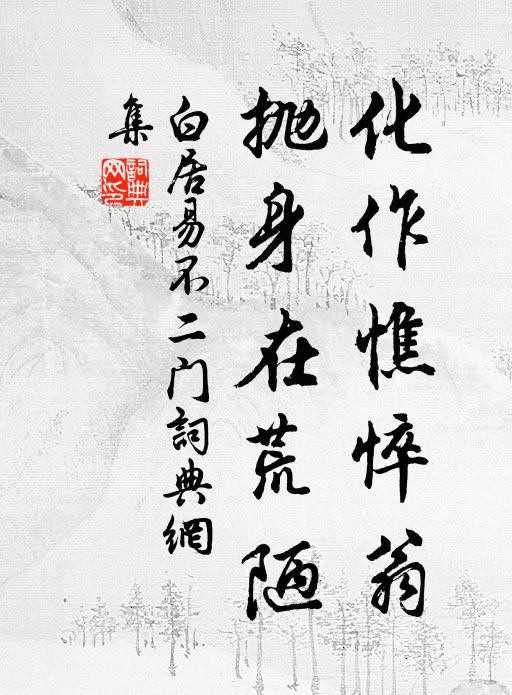 化作憔悴翁
抛身在荒陋
白居易不二门詞典網
集
詞典網